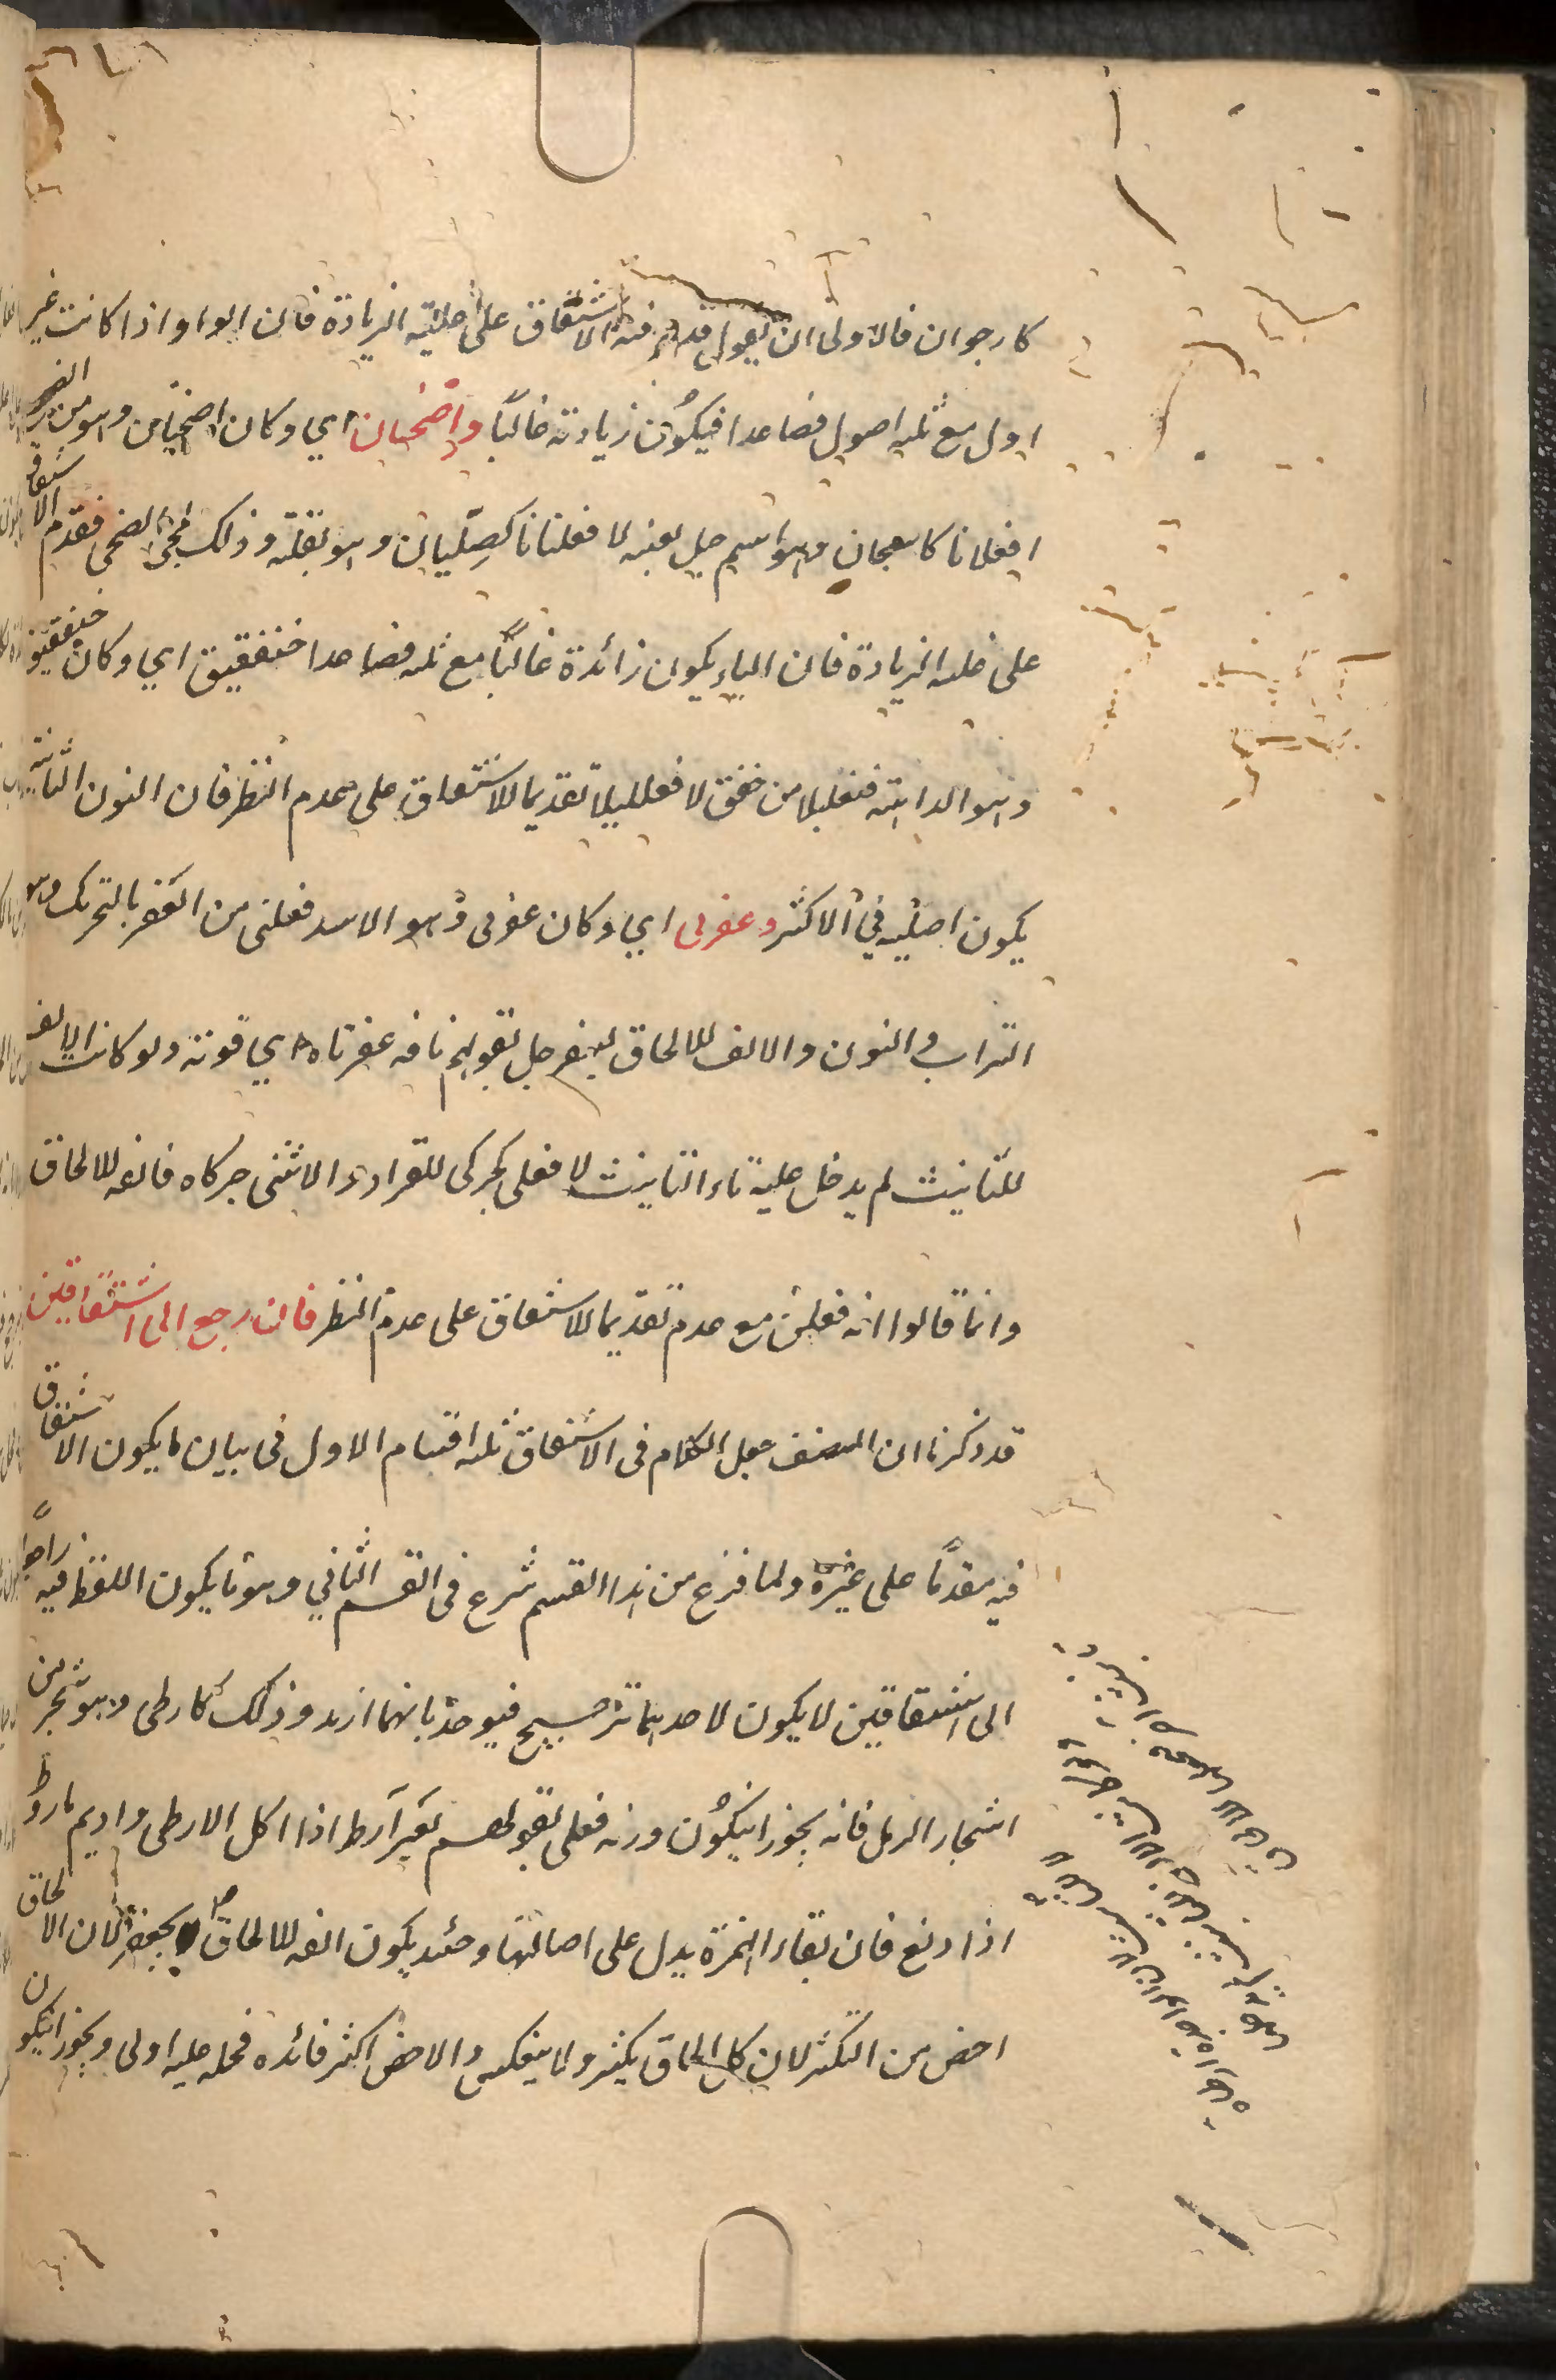 كارجوان فالاولى ان يقول قدم فيه الاشتقاق على غلبة الزيادة فان الواو اذا كانت غير
اول مع ثلثه اصول فصاعدا فيكون زيادته غالبًا واضحيان اي وكان اضحيان وهو من الضحى
افعلانا كاسحمان وهو اسم جبل بعينه لا فعلنانا كصليان وهو بقلة وذلك لمجئ الضحى فقدم الاشتقاق
على غلبه الزيادة فان الياء يكون زائدة غالبًا مع ثلثه فصاعدا خنفقيق اي وكان خنفقيق
وهو الداهية فنعليلا من خفق لا فعلليلا تقديما للاشتقاق على عدم النظر فان النون الثانية
يكون اصلية في الاكثر وعفرنى اي وكان عفرنى وهو الاسد فعلنى من العفر بالتحريك وهو
التراب والنون والالف للالحاق بسفرجل لقولهم ناقه عفرناه اي قوية ولو كانت الالف
للتانيث لم يدخل عليه تاء التانيث لا فعلى كجركى للقراد والانثى جركاه فالفه للالحاق
وانما قالوا انه فعلنى مع عدم تقديما للاشتقاق على عدم النظر فان رجع الى اشتقاقين
قد ذكرنا ان المصنف جعل الكلام فى الاشتقاق ثلثه اقسام الاول فى بيان ما يكون الاشتقاق
فيه مقدمًا على غيره ولما فرغ من هذا القسم شرع فى القسم الثاني وهو ما يكون اللفظ فيه راجعًا
الى اشتقاقين لا يكون لاحديهما ترجيح فيوخذ بايهما اريد وذلك كارطى وهو شجر من
اشجار الرمل فانه يجوز ان يكون وزنه فعلى لقولهم بعير آرط اذا اكل الارطى واديم ماروط
اذا دبغ فان بقاء الهمزة يدل على اصالتها وحينئذ يكون الفه للالحاق بجعفر لان الالحاق
اخص من التكثر لان كل الحاق يكثر ولا ينعكس والاخص اكثر فائده فحمله عليه اولى ويجوز ان يكون